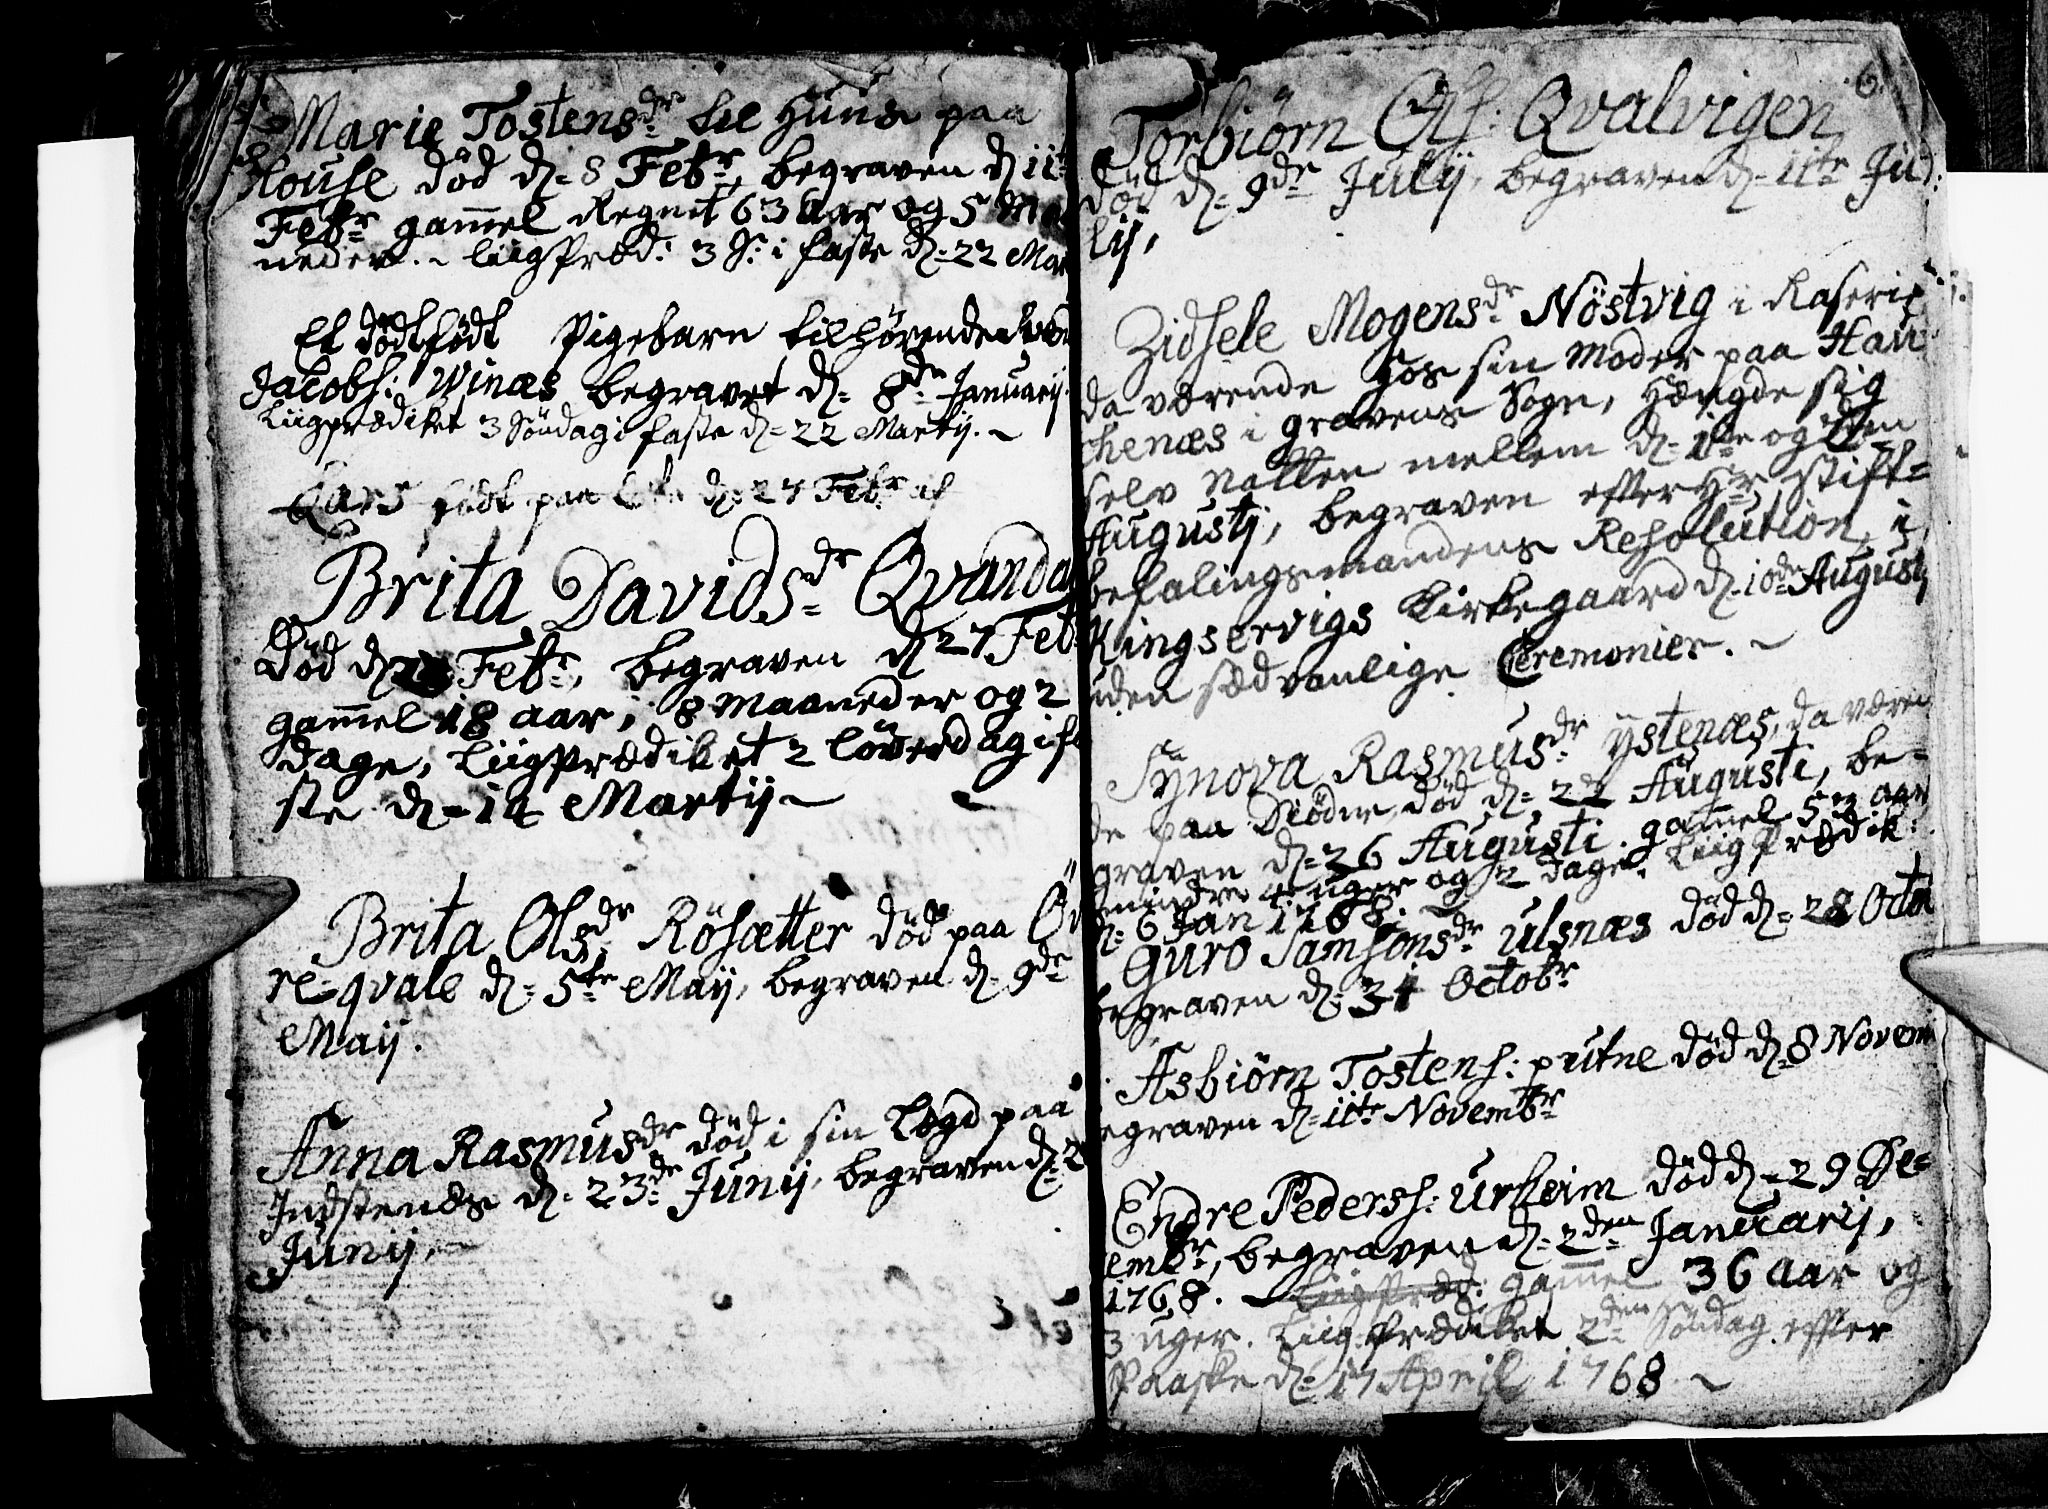 Marie Tostensdr til Huus paa
House død d= 8 Febr, begraven d 11te
Febr gam̅el Regnet 63 aar og 5 Maa
neder. ~ Liigpræd: 3 S: i faste d= 22 Mar
Et dødtfødt Pigebarn tilhørende
Jacobs: Winæs begravet d= 8de Januarij.
Liigprædiket 3 Søndag i faste d= 22 Martij. ~
Lars født paa d= 27 Febr af
Brita Davidsdr Qvanda
Død d Febr, begraven d 27 Feb
gam̅el 18 aar, 8 Maaneder og 2
dage, Liigprædiket 2 Løverdag i fa
ste d= 14 Martij ~
Brita Olsdr Røsætter død paa Øv
re=qvale d= 5te Maij, begraven d= 9de
Maij.
Anna Rasmusdr død i sin Logd paa
Indstenæs d= 23de Junij, begraven d= 2
Junij, ~
6.
Torbiørn Ols: Qvalvigen
død d= 9de Julij, begraven d= 11te Ju
lij.
Zidsele Mogensdr Nöstvig i Raserie
da værende hos sin Moder paa Hau
chenæs i gravens Sogn, hængde sig
selv Natten mellem d= 1te og den
Augustj, begraven efter Hr Stift=
befalingsmandens Resolution, i
Kingservigs Kirkegaard d. 10de Augustj
uden sædvanlige Ceremonier. ~
Synova Rasmusdr ystenæs, da være
de paa Diødne, død d= 22 Augusti, be=
graven d= 26 Augusti. gam̅el 57 aar
mindre 4 uger og 2 dage. Liigprædik:
d= 6 Jan 1768.
Guro Samsonsdr Ulsnæs død d= 28 Octo
begraven d= 31 Octobr
Asbiørn Tostens: putne død d= 8 Novem
egraven d= 11te Novembr
Endre Peders: Urheim død d= 29 De=
embr, begraven d= 2den Januarij,
1768. ~ Liigpræd: gam̅el 36 aar og
3 uger. Liigprædiket 2den Søndag effter
Paaske d= 17 April 1768. ~